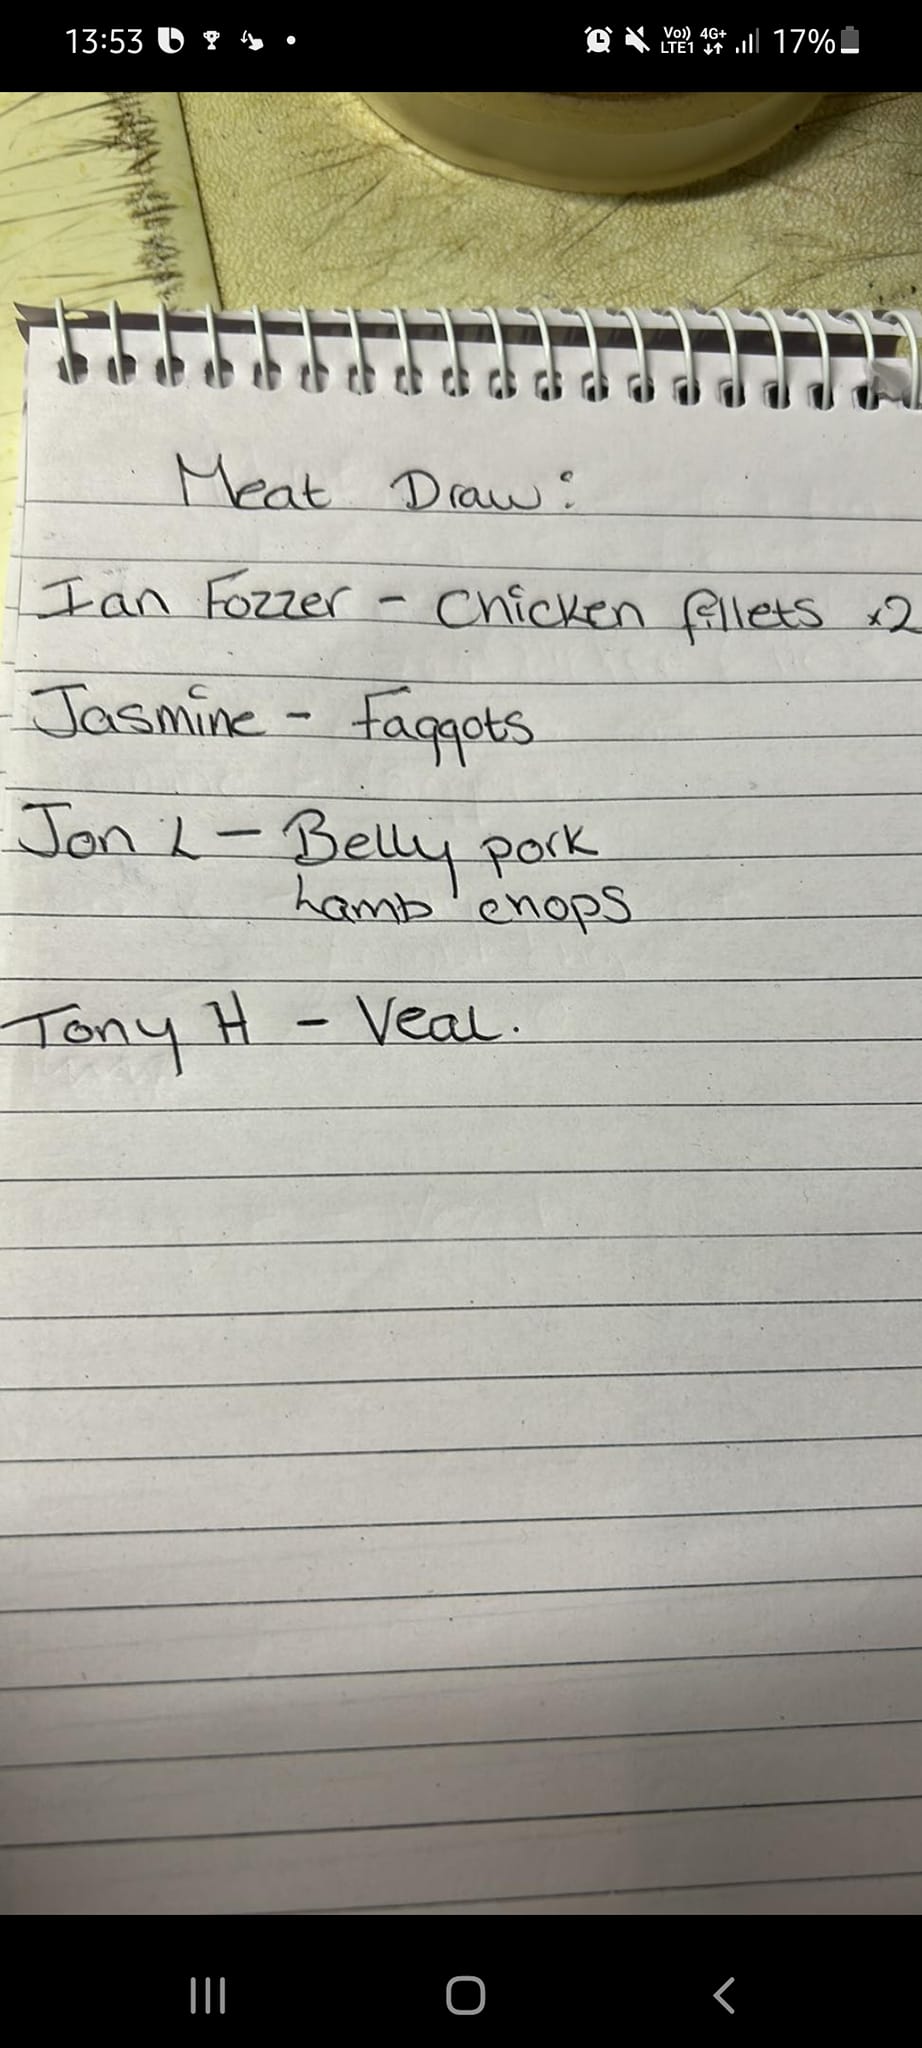 13:53
Vo)) 4G+
LTE1
17%
Meat Draw:
Ian Fozzer - Chicken fillets x2
Jasmine - Faggots
Jon L - Belly pork
Lamb chops
Tony H - Veal.